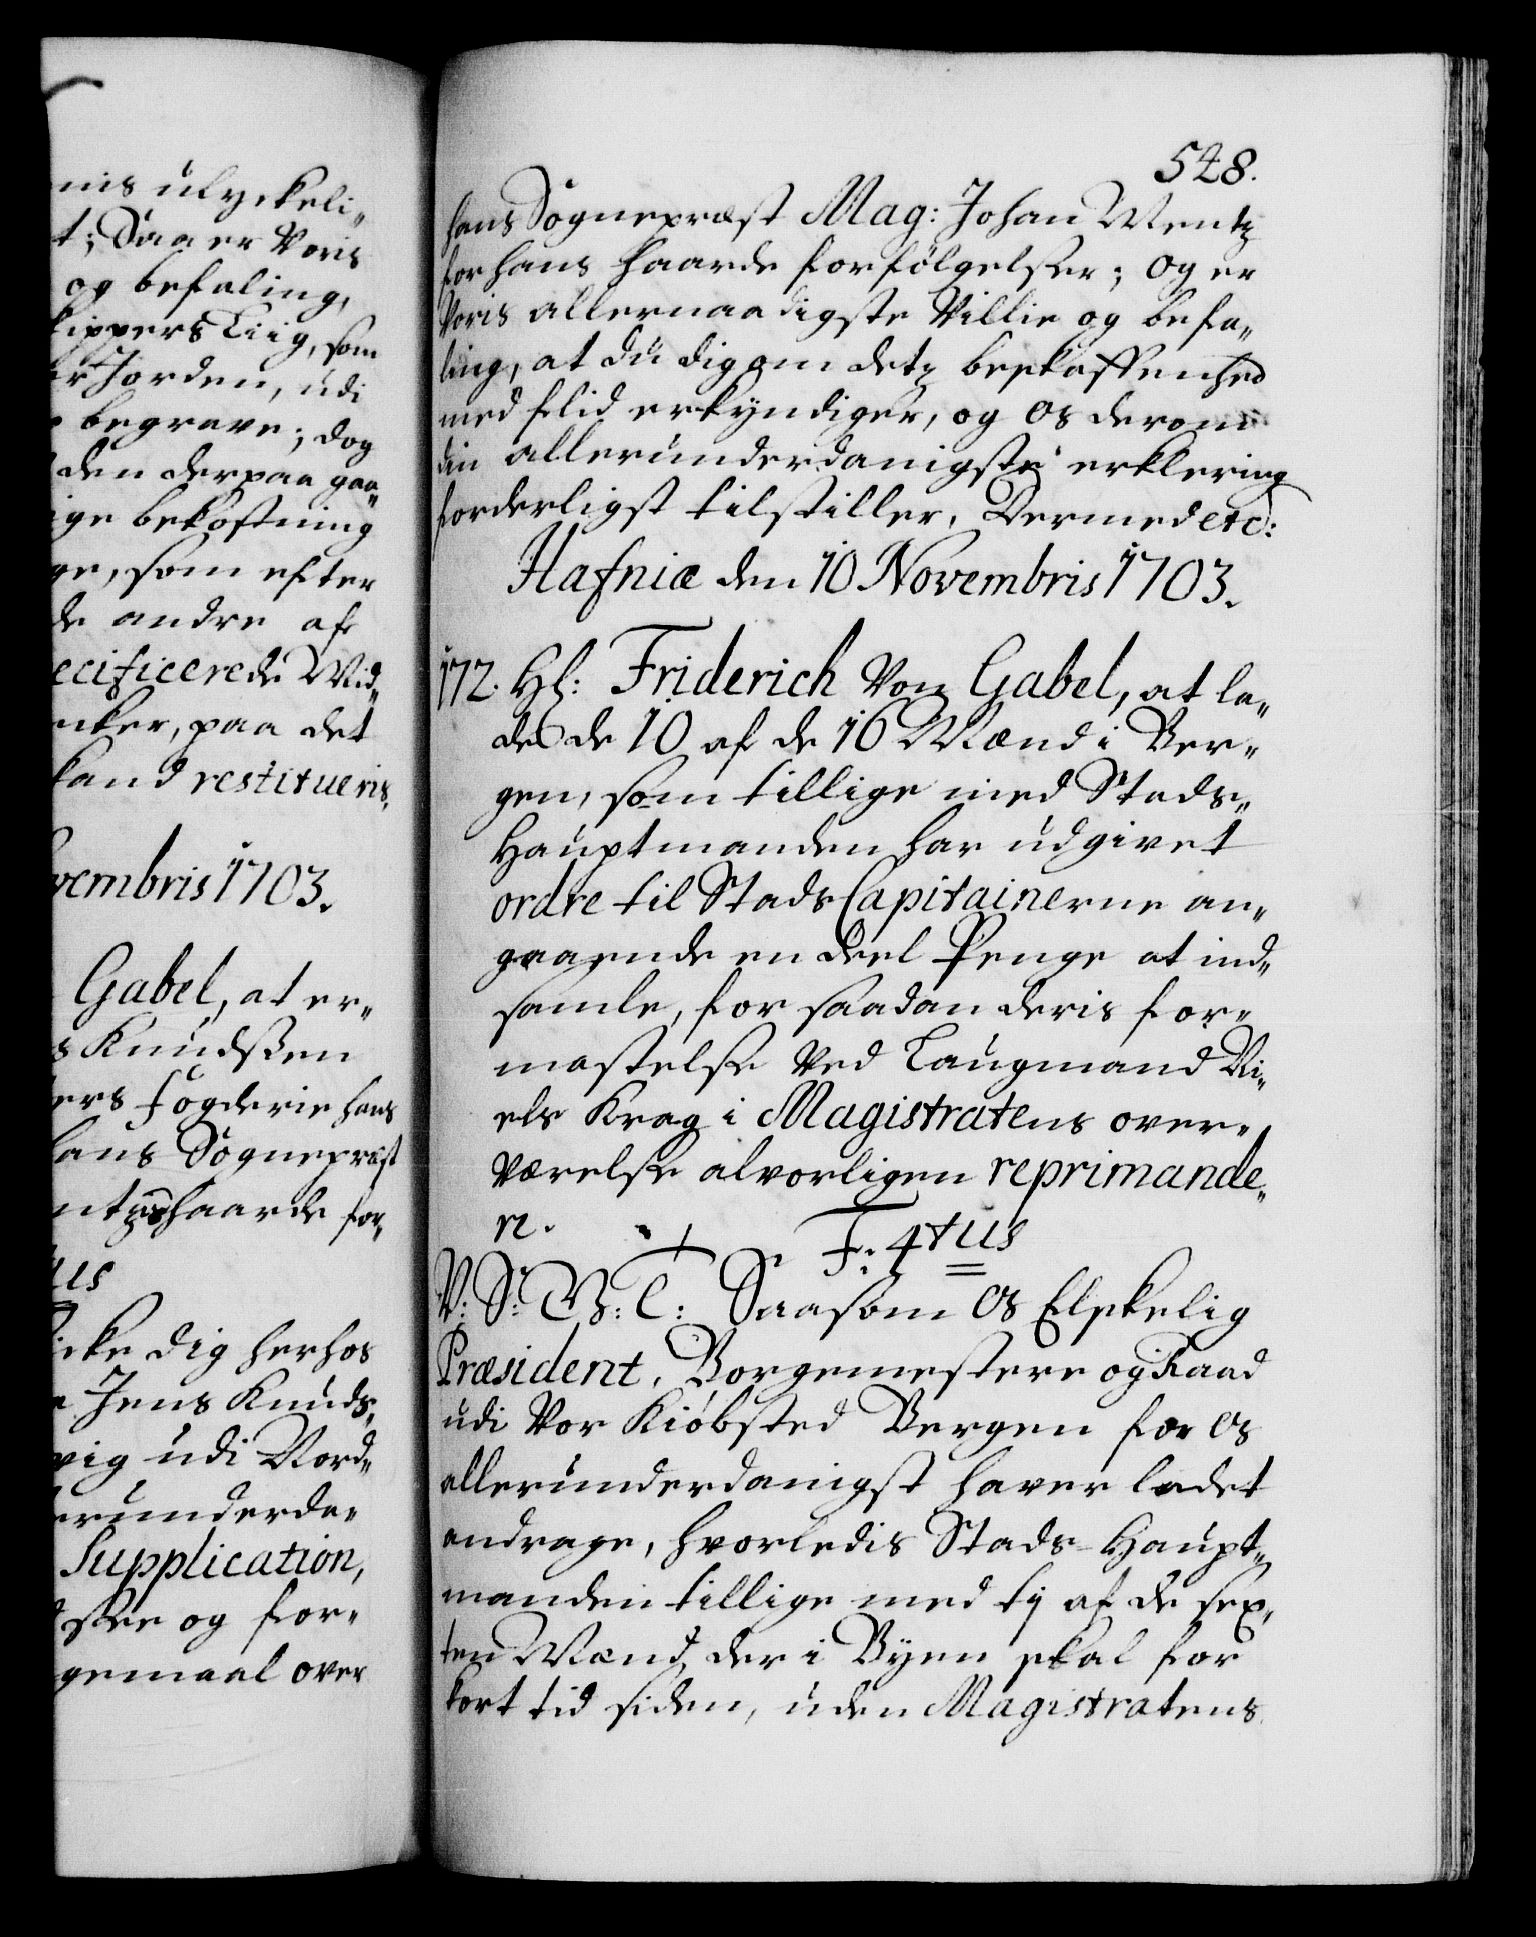 nis ulyckeli„
t; Saa er Voris
og befaling,
kippers Liig, som
er Jorden, udi
begrave; dog
den derpaa gaa„
ige bekostning
ge, som efter
de andre af
ecificerede Mid„
ncker, paa det
kand restitueris.
vembris 1703.
Gabel, at er„
s Knudsen
ers fögderie hans
hans Sognepræst
ntzes haarde for„
us
icke dig herhos
Jens Knuds„
vig udi Nord„
erunderda„
Supplication,
ster og for„
gemaal over
548.
hans Sognepræst Mag: Johan Mentz
for hans haarde forfölgelser; og er
Voris allernaadigste Villie og befa„
ling, at du dig om detz beskaffenhed
med flid erkyndiger, og os derom
din allerunderdanigste erklering
forderligst tilstiller, Dermed etc:
Hafniæ den 10 Novembris 1703.
172. Hl: Friderich Von Gabel, at la„
de de 10 af de 16 Mænd i Ber„
gen, som tillige med Stads„
Hauptmanden har udgivet
ordre til Stads Capitainerne an„
gaaende en deel Penge at ind„
samle, for saadan deris for„
mastelse ved Laugmand Ni„
els Krag i Magistratens over„
værelse alvorligen reprimande„
re. F: 4tus
V: S: G: T: Saasom os Elskelig
Præsident, Borgemestere og Raad
udi Vor Kiöbsted Bergen for os
allerunderdanigst haver ladet
andrage, hvorledis Stads-Haupt„
manden tillige med tj af de sex„
ten Mænd der i Byen skal for
kort tid siden, uden Magistratens